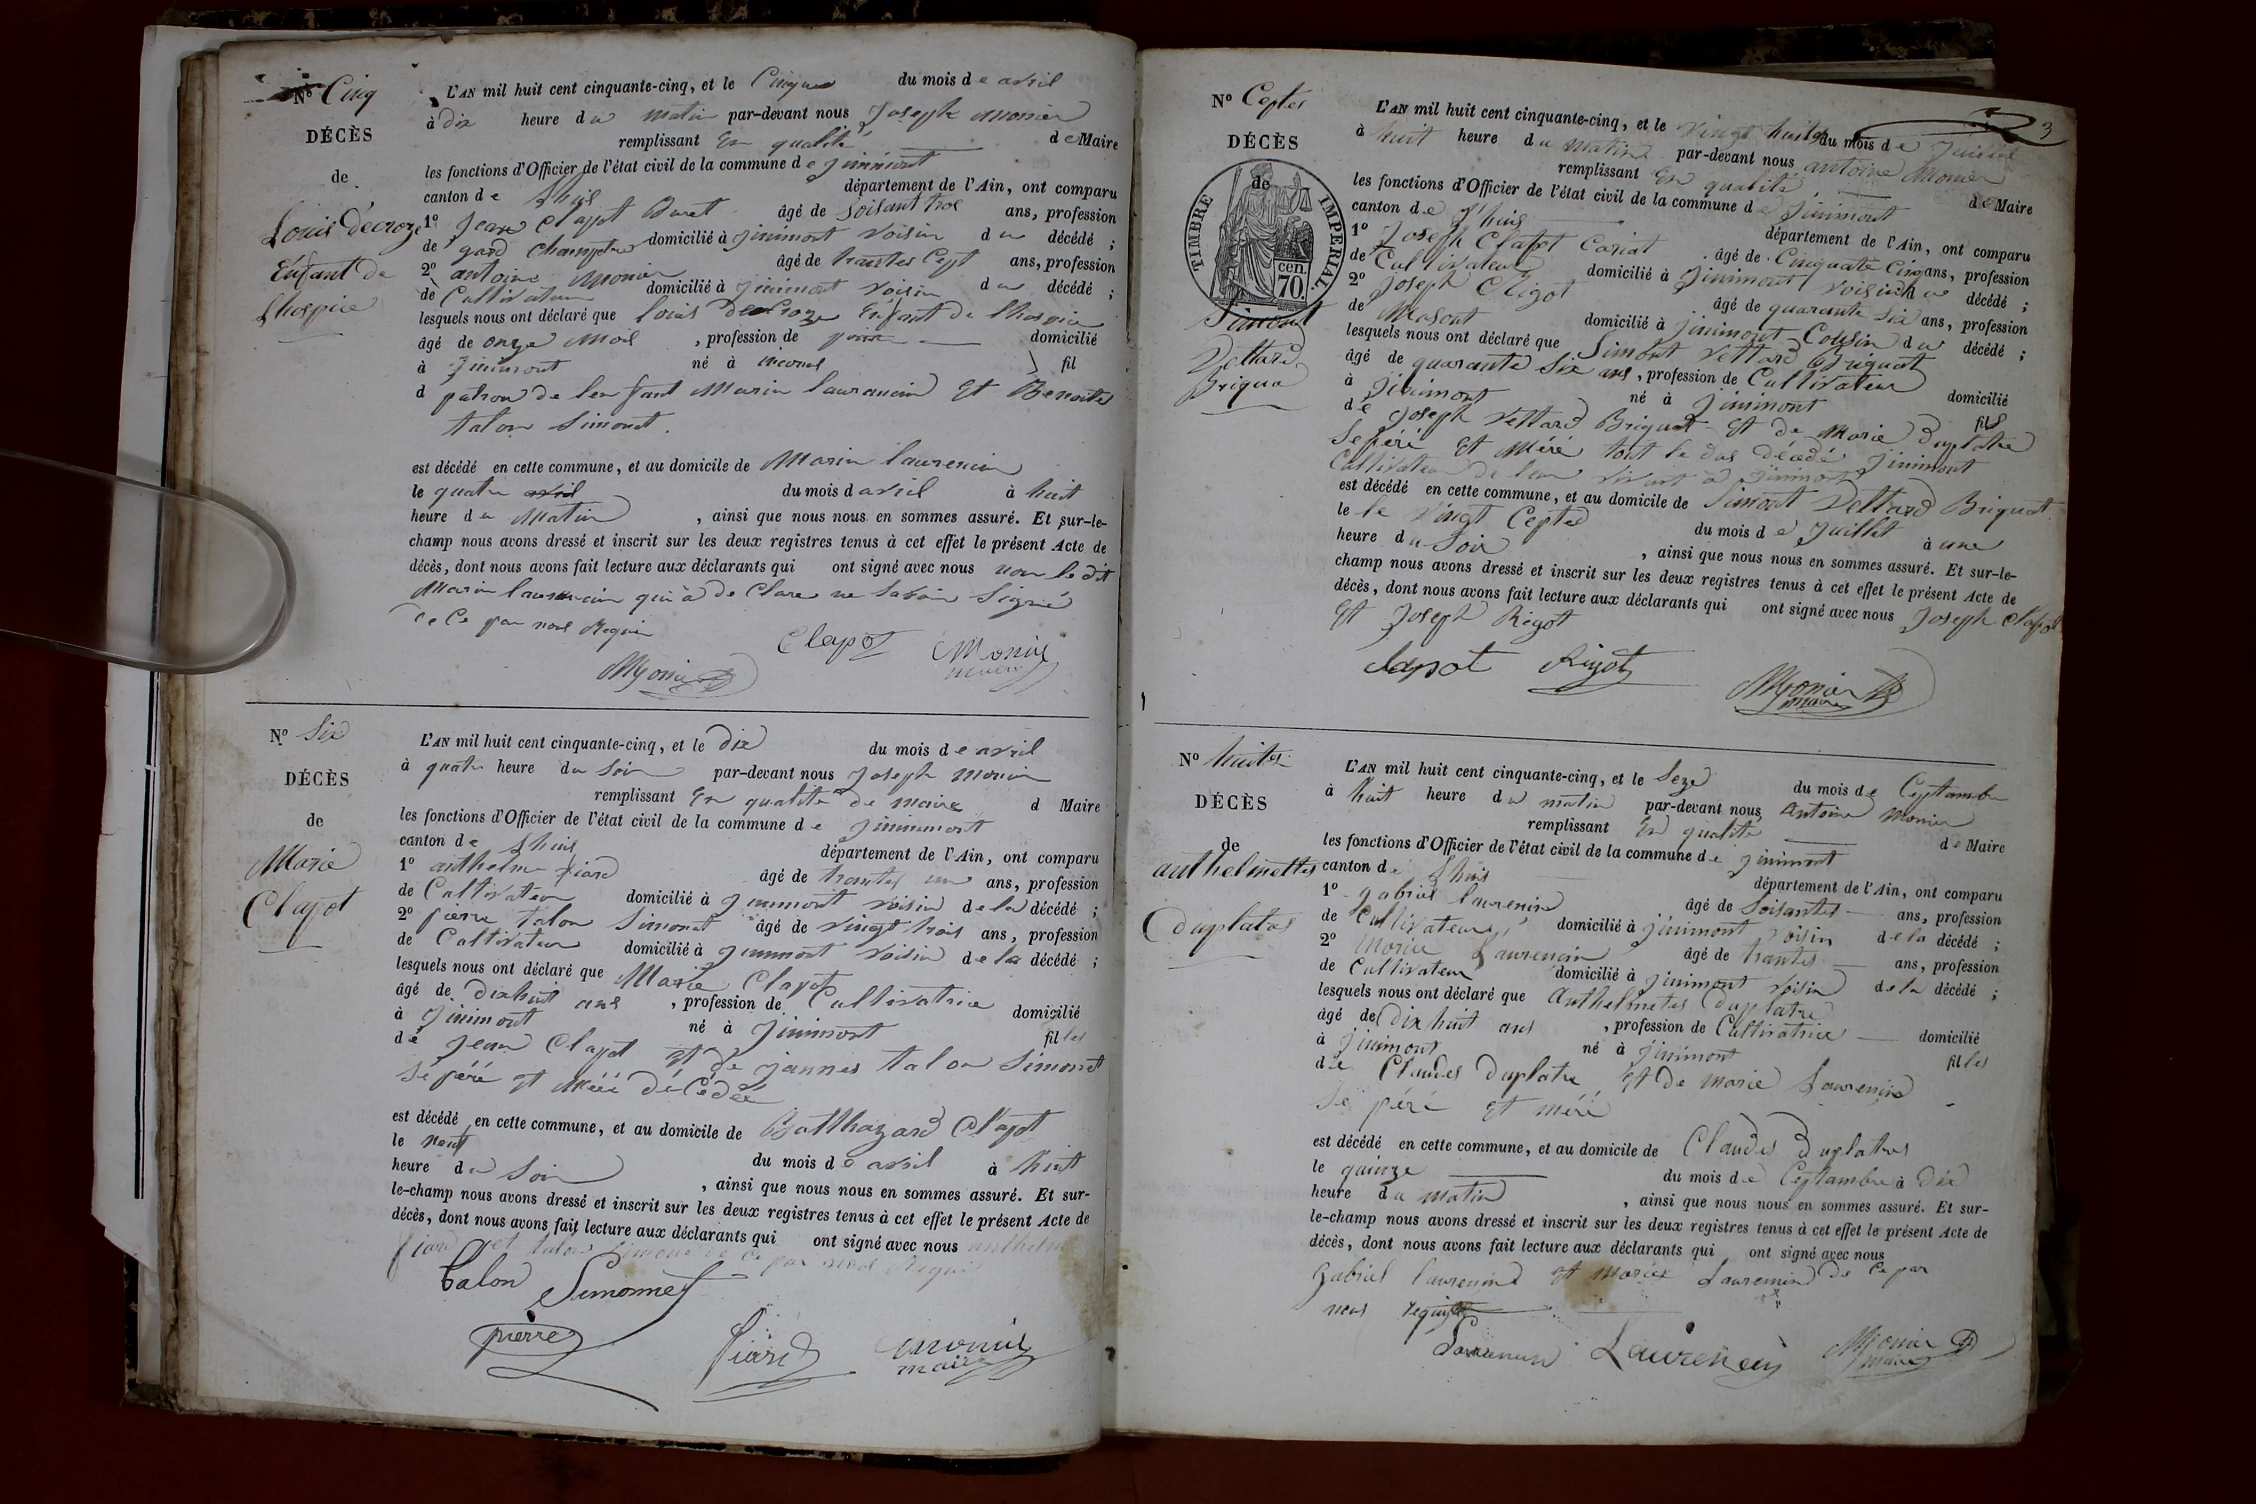 N° Cinq
DÉCÈS
de
Louis decroze
Enfant de
Lhospice
L'AN mil huit cent cinquante-cinq, et le Cinque du mois de avril
à dix heure du matin par-devant nous Joseph Monier
remplissant En qualité de Maire
les fonctions d'Officier de l'état civil de la commune de jinimont
canton de Lhuis département de l'Ain, ont comparu
1° Jean Clapot Buret âgé de Soisant trois ans, profession
de gard Champetre domicilié à jinimont voisin du décédé ;
2° antoine Monier âgé de trantes Cept ans, profession
de Cultivateur domicilié à jinimont voisin du décédé ;
lesquels nous ont déclaré que Louis decroze Enfant de lhospice
âgé de onze Mois , profession de domicilié
à jinimont né à fil
d patron de lenfant Marin laurancin Et Benoites
talon Simonet
est décédé en cette commune, et au domicile de Marin laurencin
le quatre avril du mois d avril à huit
heure du Matin , ainsi que nous nous en sommes assuré. Et sur-le-
champ nous avons dressé et inscrit sur les deux registres tenus à cet effet le présent Acte de
décès, dont nous avons fait lecture aux déclarants qui ont signé avec nous non le dit
Marin laurencin qui à de Clare ne Savoir Signié
de Ce par nous Requis
Clapot Monier
maire
Monier
N° Six
DÉCÈS
de
Marie
Clapot
L'AN mil huit cent cinquante-cinq, et le dix du mois de avril
à quatre heure du Soir par-devant nous Joseph Monier
remplissant En qualité de maire d Maire
les fonctions d'Officier de l'état civil de la commune de jinimmont
canton de Lhuis département de l'Ain, ont comparu
1° anthelme fiard âgé de trantes un ans, profession
de Cultivateur domicilié à jinimont voisin de la décédé ;
2° pierre talon Simonet âgé de vingt trois ans, profession
de Cultivateur domicilié à jinimont voisin de la décédé ;
lesquels nous ont déclaré que Marie Clapot
âgé de Dixhuit ans , profession de Cultivatrice domicilié
à jinimont né à jinimont filles
dé Jean Clapot Et de jannes talon Simonet
Sé péré Et Méré décédée
est décédé en cette commune, et au domicile de Balthazard Clapot
le neuf du mois de avril à huit
heure du Soir , ainsi que nous nous en sommes assuré. Et sur-
le-champ nous avons dressé et inscrit sur les deux registres tenus à cet effet le présent Acte de
décès, dont nous avons fait lecture aux déclarants qui ont signé avec nous anthelme
fiard et talon Simonet de ce par nous Requis
talon Simonnet
pierre fiard Monier
maire
N° Septes
DÉCÈS
de
TIMBRE IMPERIAL.
70 cen.
Simont
Vettard
Briqua
3
L'AN mil huit cent cinquante-cinq, et le vingt huites du mois de juillet
à huit heure du matin par-devant nous antoine Monier
remplissant En qualité de Maire
les fonctions d'Officier de l'état civil de la commune de jinimont
canton de Lhuis département de l'Ain, ont comparu
1° Joseph Clapot Cariat âgé de Cinquate Cinq ans, profession
de Cultivateur domicilié à jinimont voisin du décédé ;
2° Joseph Rigot âgé de quarante six ans, profession
de Masont domicilié à jinimont Cousin du décédé ;
lesquels nous ont déclaré que Simont Vettard Briquat
âgé de quarante six ans , profession de Cultivateur domicilié
à jinimont né à jinimont fils
dé Joseph Vettard Briquat Et de Marie Duplatre
Se péré Et Méré tout le dus décédé jinimont
Cultivateur de leur vivant à jinimont
est décédé en cette commune, et au domicile de Simont Vettard Briquat
le le vingt Ceptes du mois de juillet à une
heure du Soir , ainsi que nous nous en sommes assuré. Et sur-le-
champ nous avons dressé et inscrit sur les deux registres tenus à cet effet le présent Acte de
décès, dont nous avons fait lecture aux déclarants qui ont signé avec nous Joseph Clapot
Et Joseph Rigot
Clapot Rigot Monier
maire
N° huites
DÉCÈS
de
anthelmettes
Duplatres
L'AN mil huit cent cinquante-cinq, et le Seze du mois de Ceptambre
à huit heure du matin par-devant nous antoine Monier
remplissant En qualité de Maire
les fonctions d'Officier de l'état civil de la commune de jinimont
canton de Lhuis département de l'Ain, ont comparu
1° gabriel laurencin âgé de Soisantes ans, profession
de Cultivateur domicilié à jinimont voisin de la décédé ;
2° Laurencin âgé de trantes ans, profession
de Cultivateur domicilié à jinimont voisin de la décédé ;
lesquels nous ont déclaré que anthelmetes Duplatre
âgé de Dixhuit ans , profession de Cultivatrice domicilié
à jinimont né à jinimont filles
dé Claudes Duplatre Et de Marie Laurencin
Se péré Et méré
est décédé en cette commune, et au domicile de Claudes Duplatres
le quinze du mois de Ceptambre à Dix
heure du matin , ainsi que nous nous en sommes assuré. Et sur-
le-champ nous avons dressé et inscrit sur les deux registres tenus à cet effet le présent Acte de
décès, dont nous avons fait lecture aux déclarants qui ont signé avec nous
gabriel laurencin Et Laurencin de ce par
nous requis
Laurencin Laurencin Monier
maire